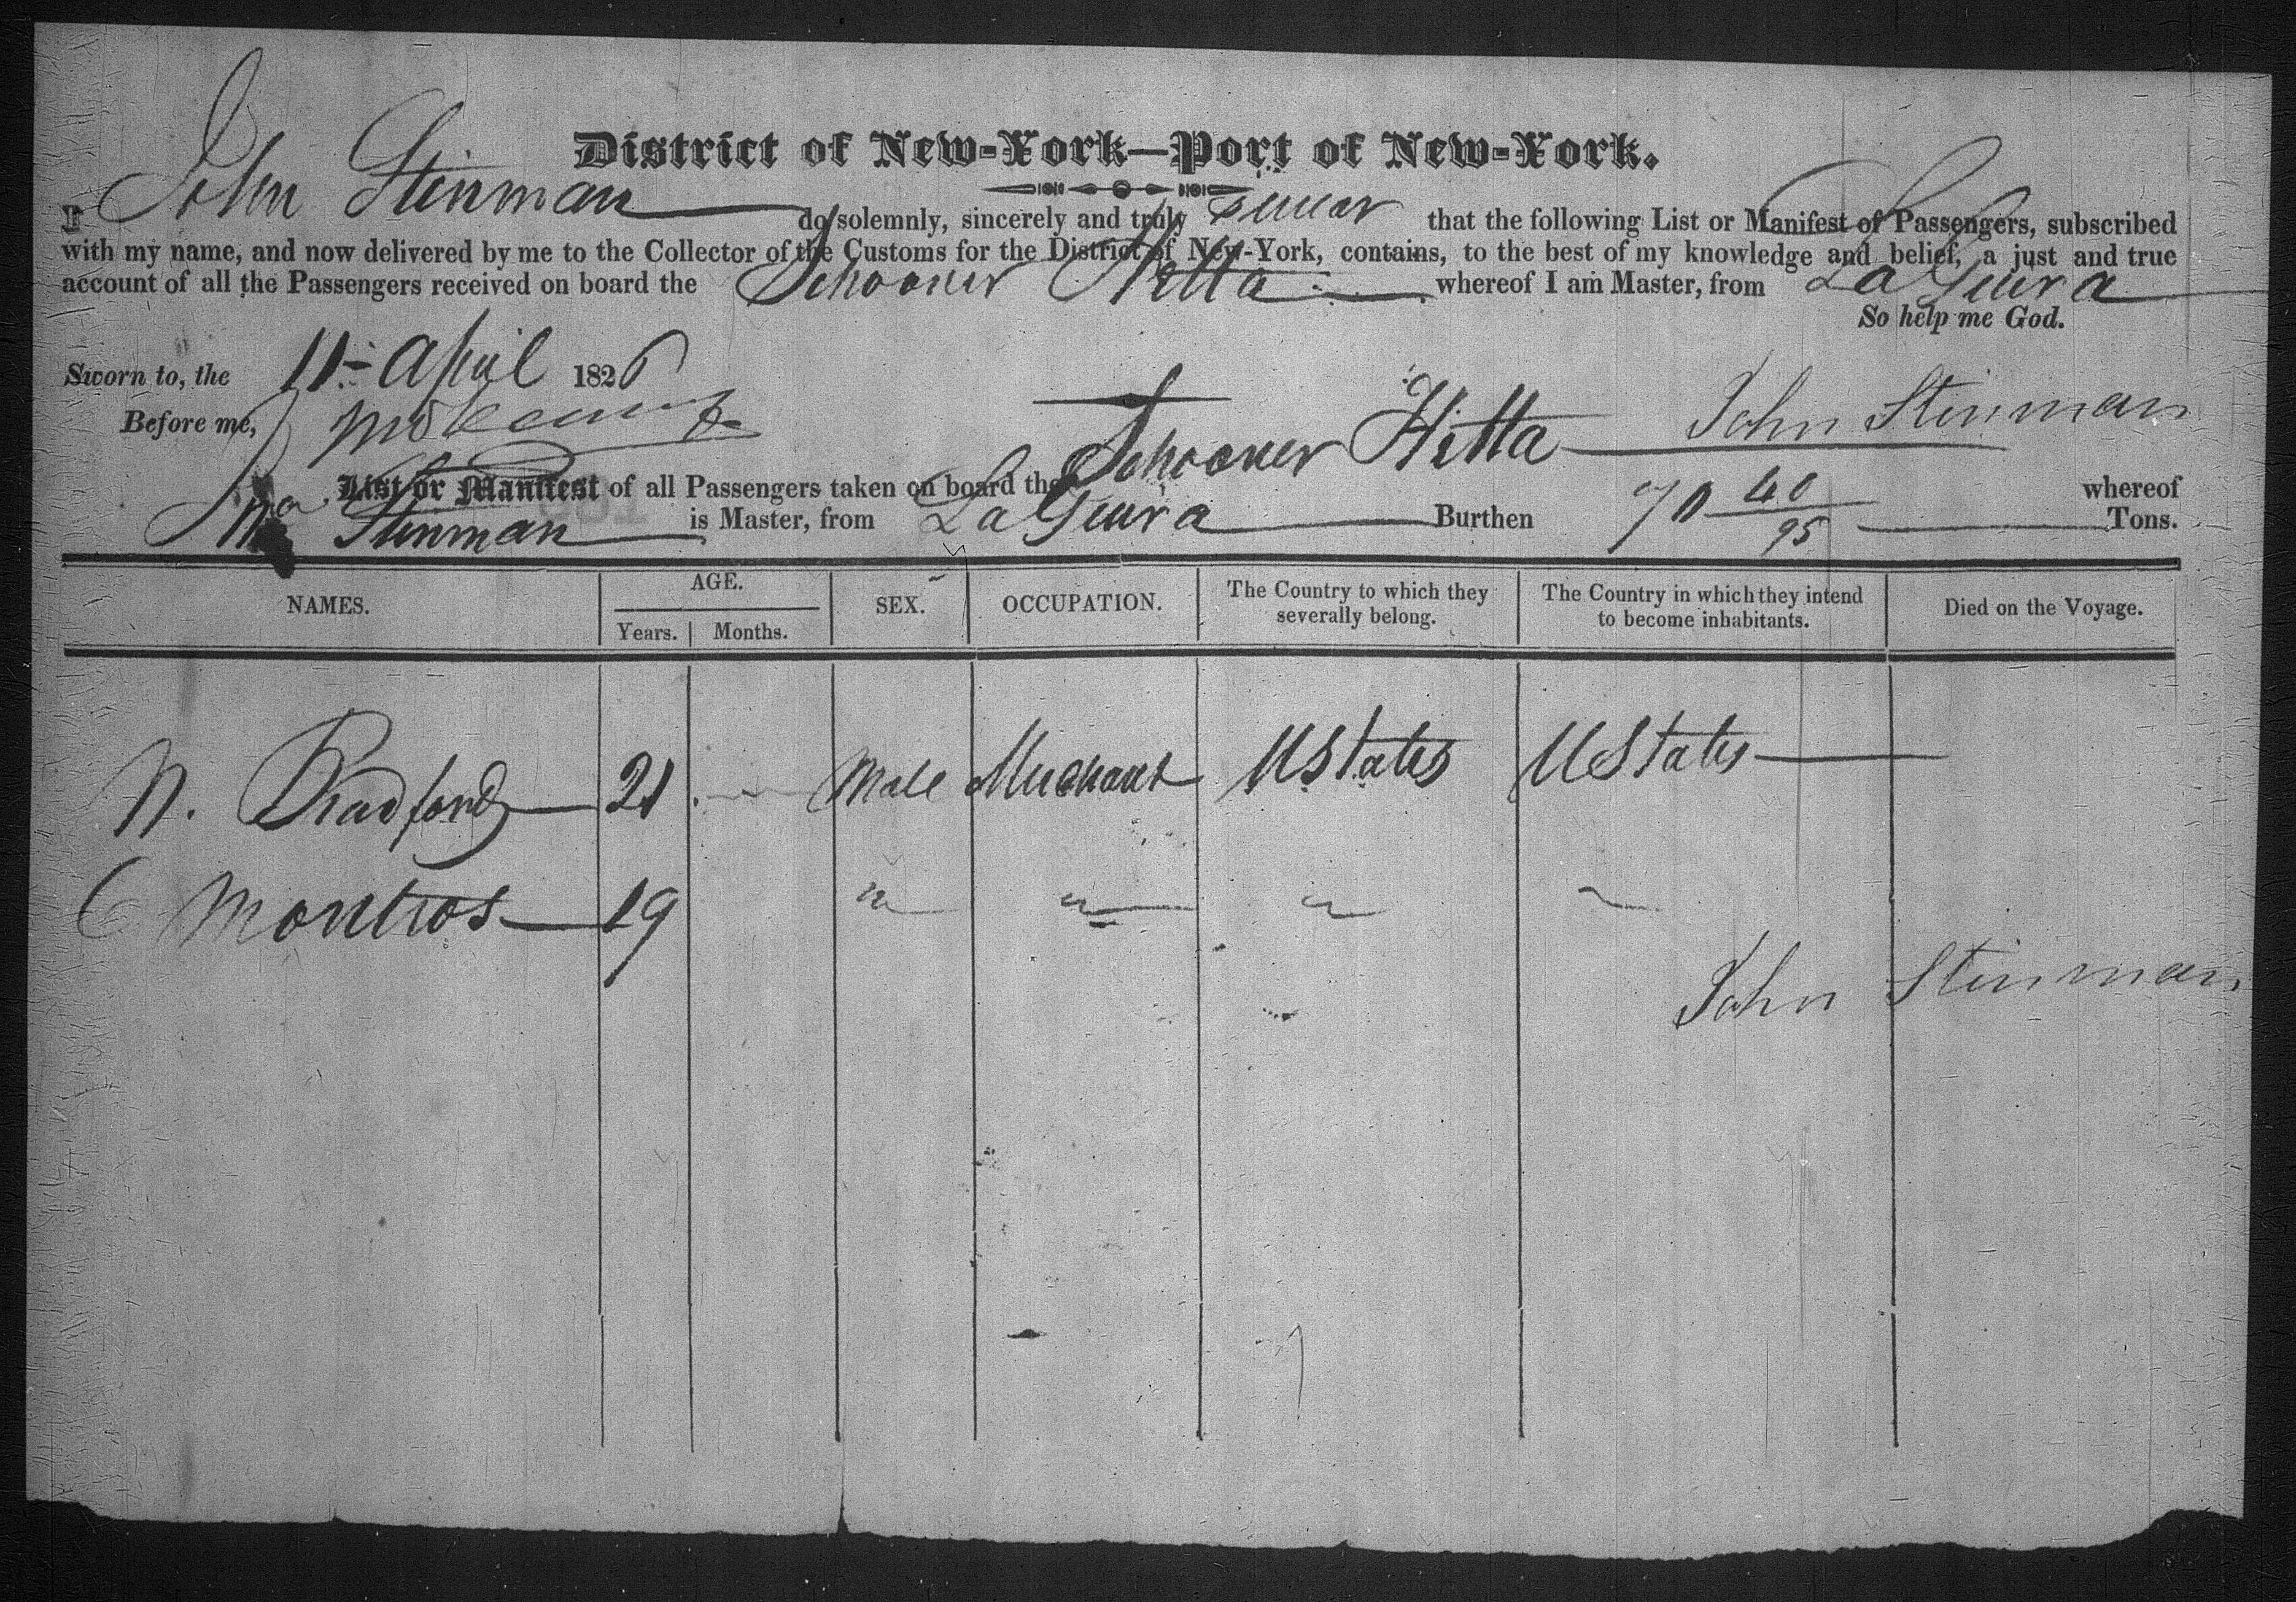 District of New-York—Port of New-York.
I John Stinman do solemnly, sincerely and truly swear that the following List or Manifest of Passengers, subscribed
with my name, and now delivered by me to the Collector of the Customs for the District of New-York, contains, to the best of my knowledge and belief, a just and true
account of all the Passengers received on board the Schooner Hetta whereof I am Master, from LaGuira
So help me God.
Sworn to, the 11 April 1826
Before me,
John Stinman
List or Manifest of all Passengers taken on board the Schooner Hetta whereof
Stinman is Master, from LaGuira Burthen 70 40/95 Tons.
NAMES. AGE. Years. Months. SEX. OCCUPATION. The Country to which they severally belong. The Country in which they intend to become inhabitants. Died on the Voyage.
N. Bradford 21 Male Merchant UStates UStates
C Montros 19 " " " "
John Stinman